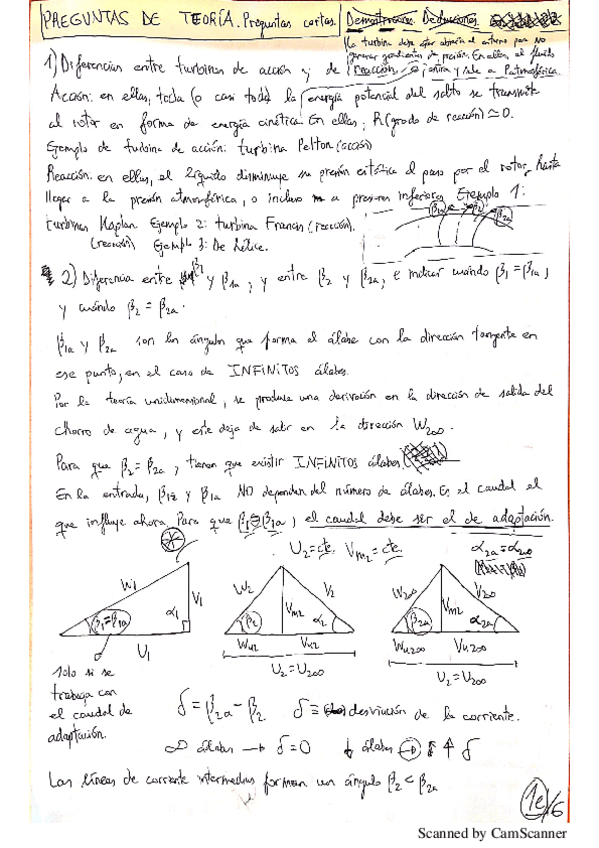 PREGUNTAS DE TEORÍA. Preguntas cortas. Demostraciones. Deducciones
La turbina debe estar abierta al entorno para no
generar gradientes de presión. En ellas, el fluido
entra y sale a Patmosférica.
1) Diferencias entre turbinas de acción y de reacción
Acción: en ellas, toda (o casi toda) la energía potencial del salto se transmite
al rotor en forma de energía cinética. En ellas, R (grado de reacción) ≃ 0.
Ejemplo de turbina de acción: turbina Pelton (acción)
Reacción: en ellas, el líquido disminuye su presión estática al paso por el rotor, hasta
llegar a la presión atmosférica, o incluso a presiones inferiores. Ejemplo 1:
turbinas Kaplan. Ejemplo 2: turbina Francis (reacción).
(reacción) Ejemplo 3: De hélice.
β1a β2 β2a
2) Diferencia entre β1 y β1a, y entre β2 y β2a, e indicar cuándo β1 = β1a,
y cuándo β2 = β2a.
β1a y β2a son los ángulos que forma el álabe con la dirección tangente en
ese punto, en el caso de INFINITOS álabes.
Por la teoría unidimensional, se produce una desviación en la dirección de salida del
chorro de agua, y este deja de salir en la dirección W2∞.
Para que β2 = β2a, tienen que existir INFINITOS álabes.
En la entrada, β1 y β1a NO dependen del número de álabes. Es el caudal el
que influye ahora. Para que β1 = β1a, el caudal debe ser el de adaptación.
U2 = cte. Vm2 = cte. α2a = α2∞
W1 V1 β1 = β1a α1 U1
W2 V2 Vm2 β2 α2 Wu2 Vu2 U2 = U2∞
W2∞ V2∞ Vm2 β2a α2a Wu2∞ Vu2∞ U2 = U2∞
solo si se
trabaja con
el caudal de
adaptación.
δ = β2a - β2 δ ≡ desviación de la corriente.
∞ álabes → δ = 0 ↓ álabes → ↑ δ
Las líneas de corriente intermedias forman un ángulo β2 < β2a
1e/6
Scanned by CamScanner